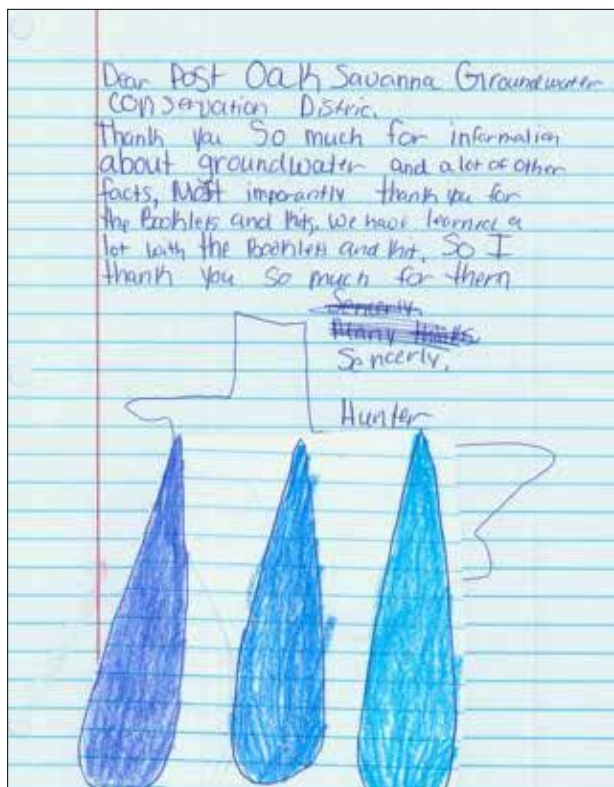 Dear Post Oak Savanna Groundwater
Conservation Distric,
Thank you So much for information
about groundwater and a lot of other
facts, Most imporantly thank you for
the Booklets and kits. we have learned a
lot with the Booklets and kit. So I
thank you so much for them
Sencerly
Many thanks
Sencerly,
Hunter